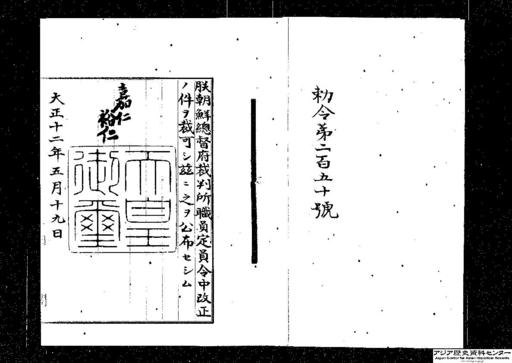 勅令第二百五十號
朕朝鮮總督府裁判所職員定員令中改正
ノ件ヲ裁可シ茲ニ之ヲ公布セシム
嘉仁
裕仁
天皇御璽
大正十二年五月十九日
アジア歴史資料センター
Japan Center for Asian Historical Records